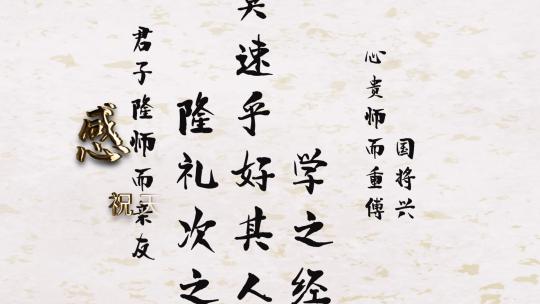 国将兴
心贵师而重傅
学之经
莫速乎好其人
隆礼次之
君子隆师而亲友
感
祝天